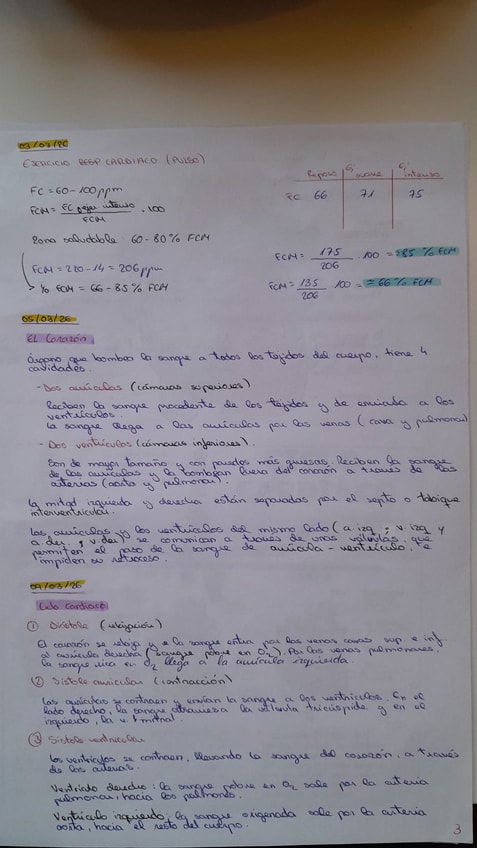 03/03/26
EJERCICIO RESP. CARDIACO (PULSO)
Reposo Ej. suave Ej. intenso
FC 66 71 75
FC = 60 - 100 ppm
FCM = FC ejer. intenso / FCM · 100
Zona saludable: 60 - 80 % FCM
FCM = 220 - 14 = 206 ppm
% FCM = 66 - 85 % FCM
FCM = 175 / 206 · 100 = 85 % FCM
FCM = 135 / 206 · 100 = 66 % FCM
05/03/26
El Corazón
Órgano que bombea la sangre a todos los tejidos del cuerpo, tiene 4
cavidades.
- Dos aurículas (cámaras superiores)
Reciben la sangre procedente de los tejidos y de enviarla a los
ventrículos.
La sangre llega a las aurículas por las venas (cava y pulmonar)
- Dos ventrículos (cámaras inferiores).
Son de mayor tamaño y con paredes más gruesas. Reciben la sangre
de las aurículas y la bombean fuera del corazón a través de las
arterias (aorta y pulmonar).
La mitad izquierda y derecha están separadas por el septo o tabique
interventricular.
Las aurículas y los ventrículos del mismo lado (a. izq ; v. izq y
a. der. ; v. der) se comunican a través de unas válvulas, que
permiten el paso de la sangre de aurícula - ventrículo, e
impiden su retroceso.
09/03/26
Ciclo cardiaco
① Diástole (relajación)
El corazón se relaja y la sangre entra por las venas cavas sup. e inf.
al aurícula derecha (sangre pobre en O2). Por las venas pulmonares,
la sangre rica en O2 llega a la aurícula izquierda.
② Sístole auricular (contracción)
Las aurículas se contraen y envían la sangre a los ventrículos. En el
lado derecho, la sangre atraviesa la válvula tricúspide y en el
izquierdo, la v. mitral.
③ Sístole ventricular
Los ventrículos se contraen, llevando la sangre del corazón, a través
de las arterias.
Ventrículo derecho: la sangre pobre en O2 sale por la arteria
pulmonar, hacia los pulmones.
Ventrículo izquierdo: la sangre oxigenada sale por la arteria
aorta, hacia el resto del cuerpo.
3